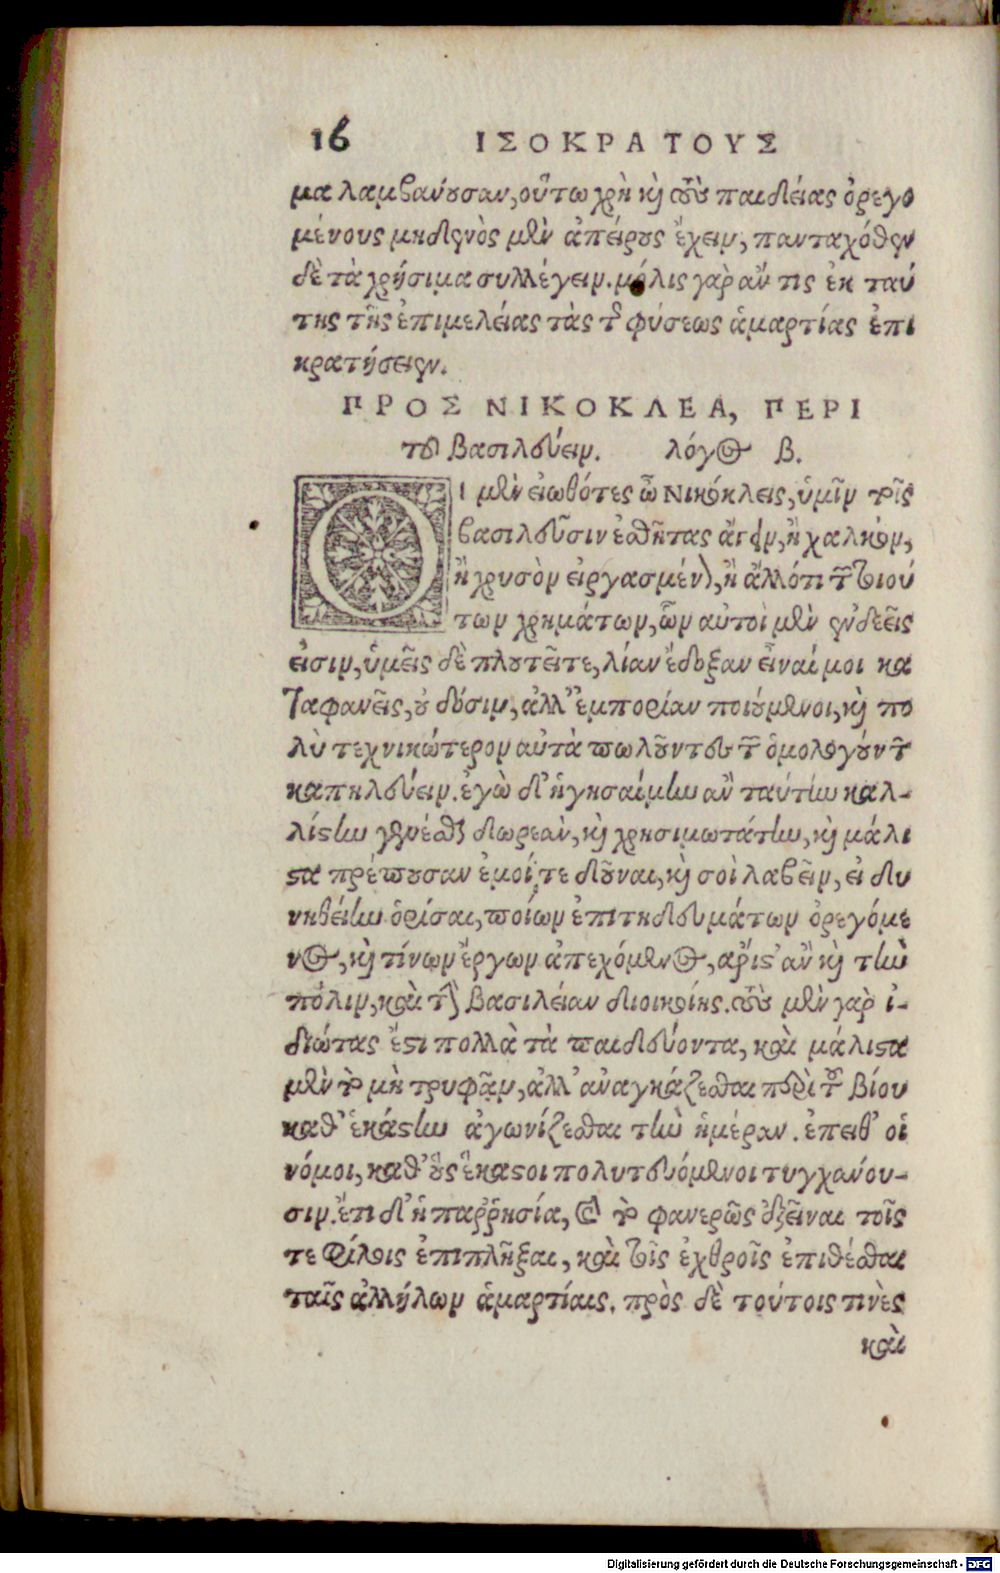 16 ΙΣΟΚΡΑΤΟΥΣ
μα λαμβανούσαν, οὕτω χρὴ καὶ τοὺς παιδείας ὀρεγο
μένους μηδενὸς μὲν ἀπείρους ἔχειν, πανταχόθεν
δὲ τὰ χρήσιμα συλλέγειν. μόλις γὰρ ἄν τις ἐκ ταύ
της τῆς ἐπιμελείας τὰς τῆς φύσεως ἁμαρτίας ἐπι
κρατήσειεν.
ΠΡΟΣ ΝΙΚΟΚΛΕΑ, ΠΕΡΙ
τοῦ βασιλεύειν. λόγος β.
ΟΙ μὲν εἰωθότες ὦ Νικόκλεις, ὑμῖν τοῖς
βασιλεῦσιν ἐσθῆτας ἄγειν, ἢ χαλκὸν,
ἢ χρυσὸν εἰργασμένον, ἢ ἄλλό τι τῶν τοιού
των χρημάτων, ὧν αὐτοὶ μὲν ἐνδεεῖς
εἰσιν, ὑμεῖς δὲ πλουτεῖτε, λίαν ἔδοξαν εἶναί μοι κα
ταφανεῖς, οὐ δόσιν, ἀλλ' ἐμπορίαν ποιούμενοι, καὶ πο
λὺ τεχνικώτερον αὐτὰ πωλοῦντες τῶν ὁμολογούντων
καπηλεύειν. ἐγὼ δ' ἡγησαίμην ἂν ταύτην καλ-
λίστην γενέσθαι δωρεὰν, καὶ χρησιμωτάτην, καὶ μάλι
στα πρέπουσαν ἐμοί τε δοῦναι, καὶ σοὶ λαβεῖν, εἰ δυ
νηθείην ὁρίσαι, ποίων ἐπιτηδευμάτων ὀρεγόμε
νος, καὶ τίνων ἔργων ἀπεχόμενος, ἄριστ' ἂν καὶ τὴν
πόλιν, καὶ τὴν βασιλείαν διοικοίης. τοὺς μὲν γὰρ ἰ-
διώτας ἔστι πολλὰ τὰ παιδεύοντα, καὶ μάλιστα
μὲν τὸ μὴ τρυφᾷν, ἀλλ' ἀναγκάζεσθαι περὶ τοῦ βίου
καθ' ἑκάστην ἀγωνίζεσθαι τὴν ἡμέραν. ἔπειθ' οἱ
νόμοι, καθ' οὓς ἕκαστοι πολυτευόμενοι τυγχάνου-
σιν. ἔτι δ' ἡ παῤῥησία, καὶ τὸ φανερῶς ἐξεῖναι τοῖς
τε φίλοις ἐπιπλῆξαι, καὶ τοῖς ἐχθροῖς ἐπιθέσθαι
ταῖς ἀλλήλων ἁμαρτίαις. πρὸς δὲ τούτοις τινὲς
καὶ
Digitalisierung gefördert durch die Deutsche Forschungsgemeinschaft - DFG